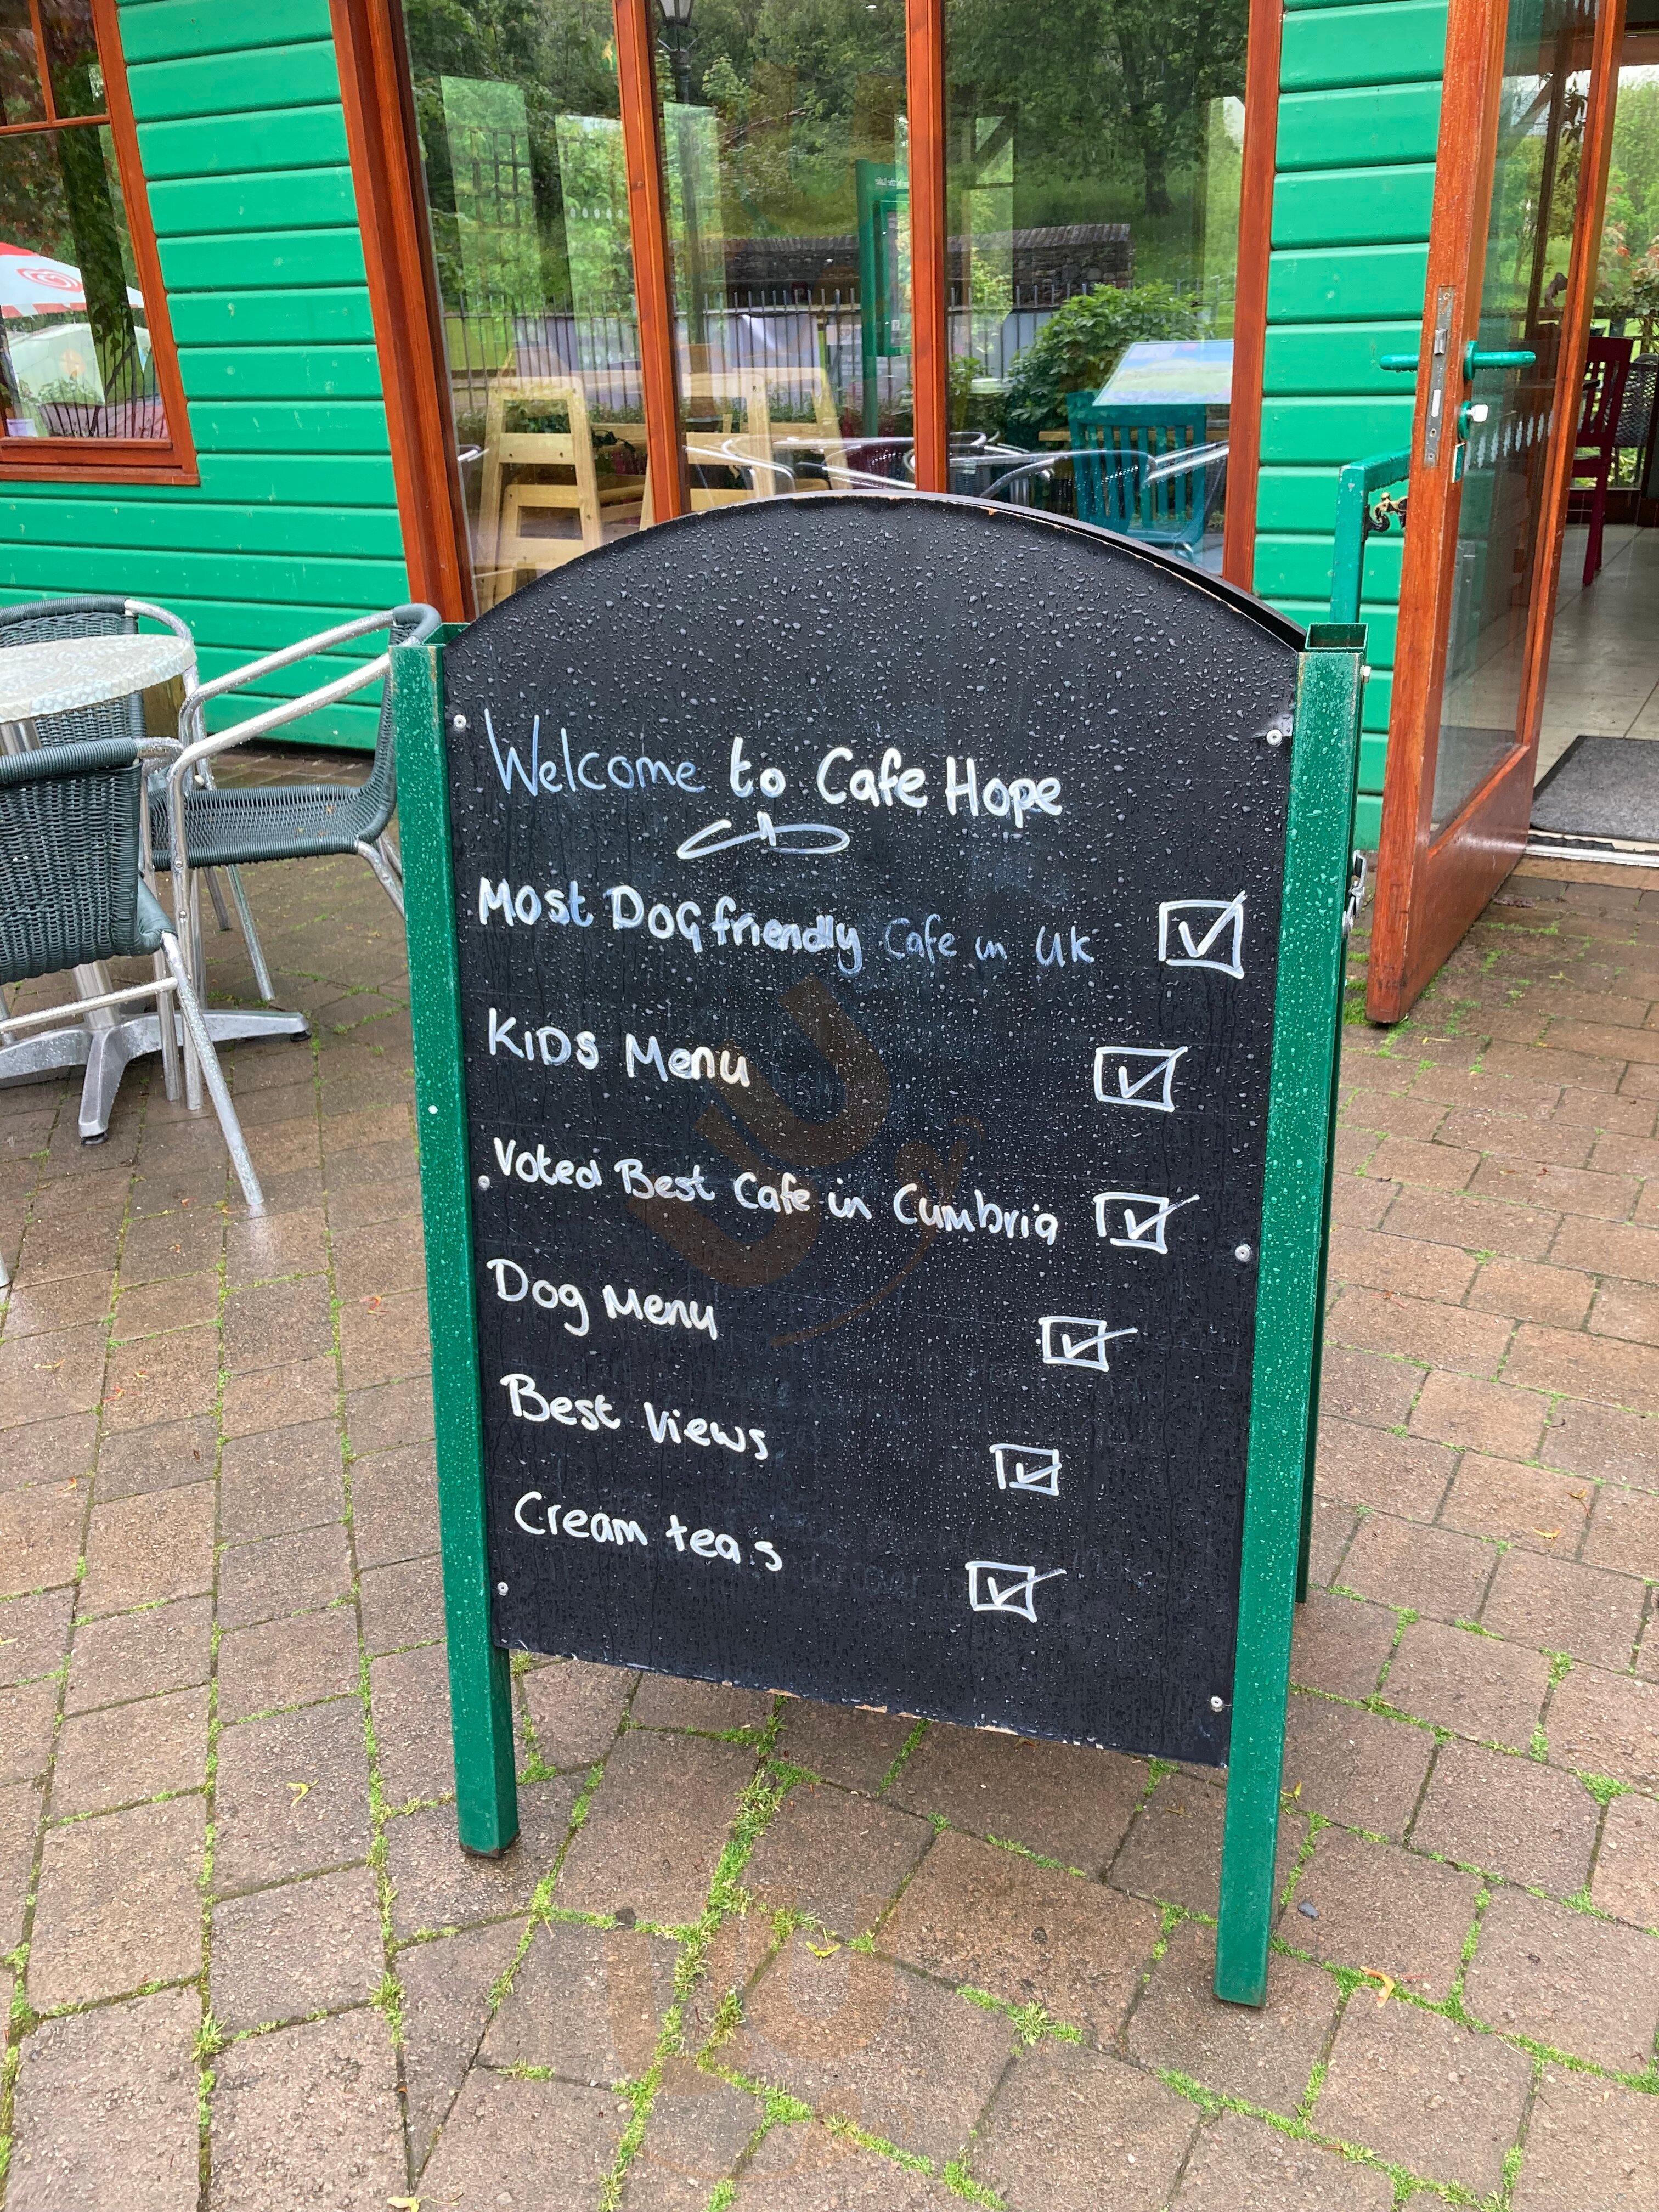 Welcome to Cafe Hope
Most Dog friendly Cafe in Uk
KiDS Menu
Voted Best Cafe in Cumbria
Dog Menu
Best Views
Cream teas